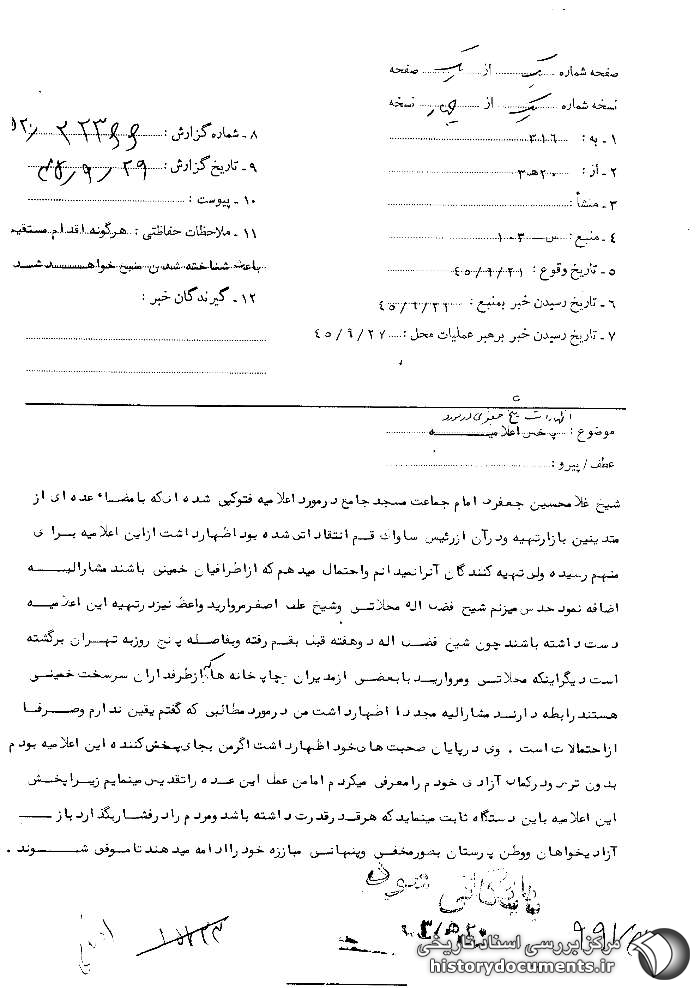 صفحه شماره یک از یک صفحه
نسخه شماره یک از چهار نسخه
۱ـ به : ۳۱۶
۲ـ از : ۲۰هـ۳
۳ـ منشأ :
۴ـ منبع : س ۱۰۳
۵ـ تاریخ وقوع : ۴۵/۹/۲۱
۶ـ تاریخ رسیدن خبر بمنبع : ۴۵/۹/۲۲
۷ـ تاریخ رسیدن خبر برهبر عملیات محل : ۴۵/۹/۲۷
۸ـ شماره گزارش :
۹ـ تاریخ گزارش : ۴۵/۹/۲۹
۱۰ـ پیوست :
۱۱ـ ملاحظات حفاظتی : هرگونه اقدام مستقیم
باعث شناخته شدن منبع خواهد شد
۱۲ـ گیرندگان خبر :
اظهارات شیخ جعفری در مورد
موضوع : پخش اعلامیه
عطف / پیرو :
شیخ غلامحسین جعفری امام جماعت مسجد جامع در مورد اعلامیه فتوکپی شده ای که بامضاء عده ای از
متدینین بازار تهیه و در آن از رئیس ساواک قم انتقاداتی شده بود اظهار داشت از این اعلامیه برای
منهم رسیده ولی تهیه کنندگان آنرا نمیدانم و احتمال میدهم که از اطرافیان خمینی باشند مشارالیه
اضافه نمود حدس میزنم شیخ فضل اله محلاتی و شیخ علی اصغر مروارید واعظ نیز در تهیه این اعلامیه
دست داشته باشند چون شیخ فضل اله دو هفته قبل بقم رفته و بفاصله پنج روز به تهران برگشته
است دیگر اینکه محلاتی و مروارید با بعضی از مدیران چاپخانه ها که از طرفداران سرسخت خمینی
هستند رابطه دارند مشارالیه مجددا اظهار داشت من در مورد مطالبی که گفتم یقین ندارم و صرفا
از احتمالات است . وی در پایان صحبت های خود اظهار داشت اگر من بجای پخش کننده این اعلامیه بودم
بدون ترس و در کمال آزادی خودم را معرفی میکردم اما من عمل این عده را تقدیس مینمایم زیرا پخش
این اعلامیه باین دستگاه ثابت مینماید که هر قدر قدرت داشته باشد و مردم را در فشار بگذارد باز
آزادیخواهان و وطن پرستان بطور مخفی و پنهانی مبارزه خود را ادامه میدهند تا موفق شوند .
بایگانی شود
مرکز بررسی اسناد تاریخی
historydocuments.ir